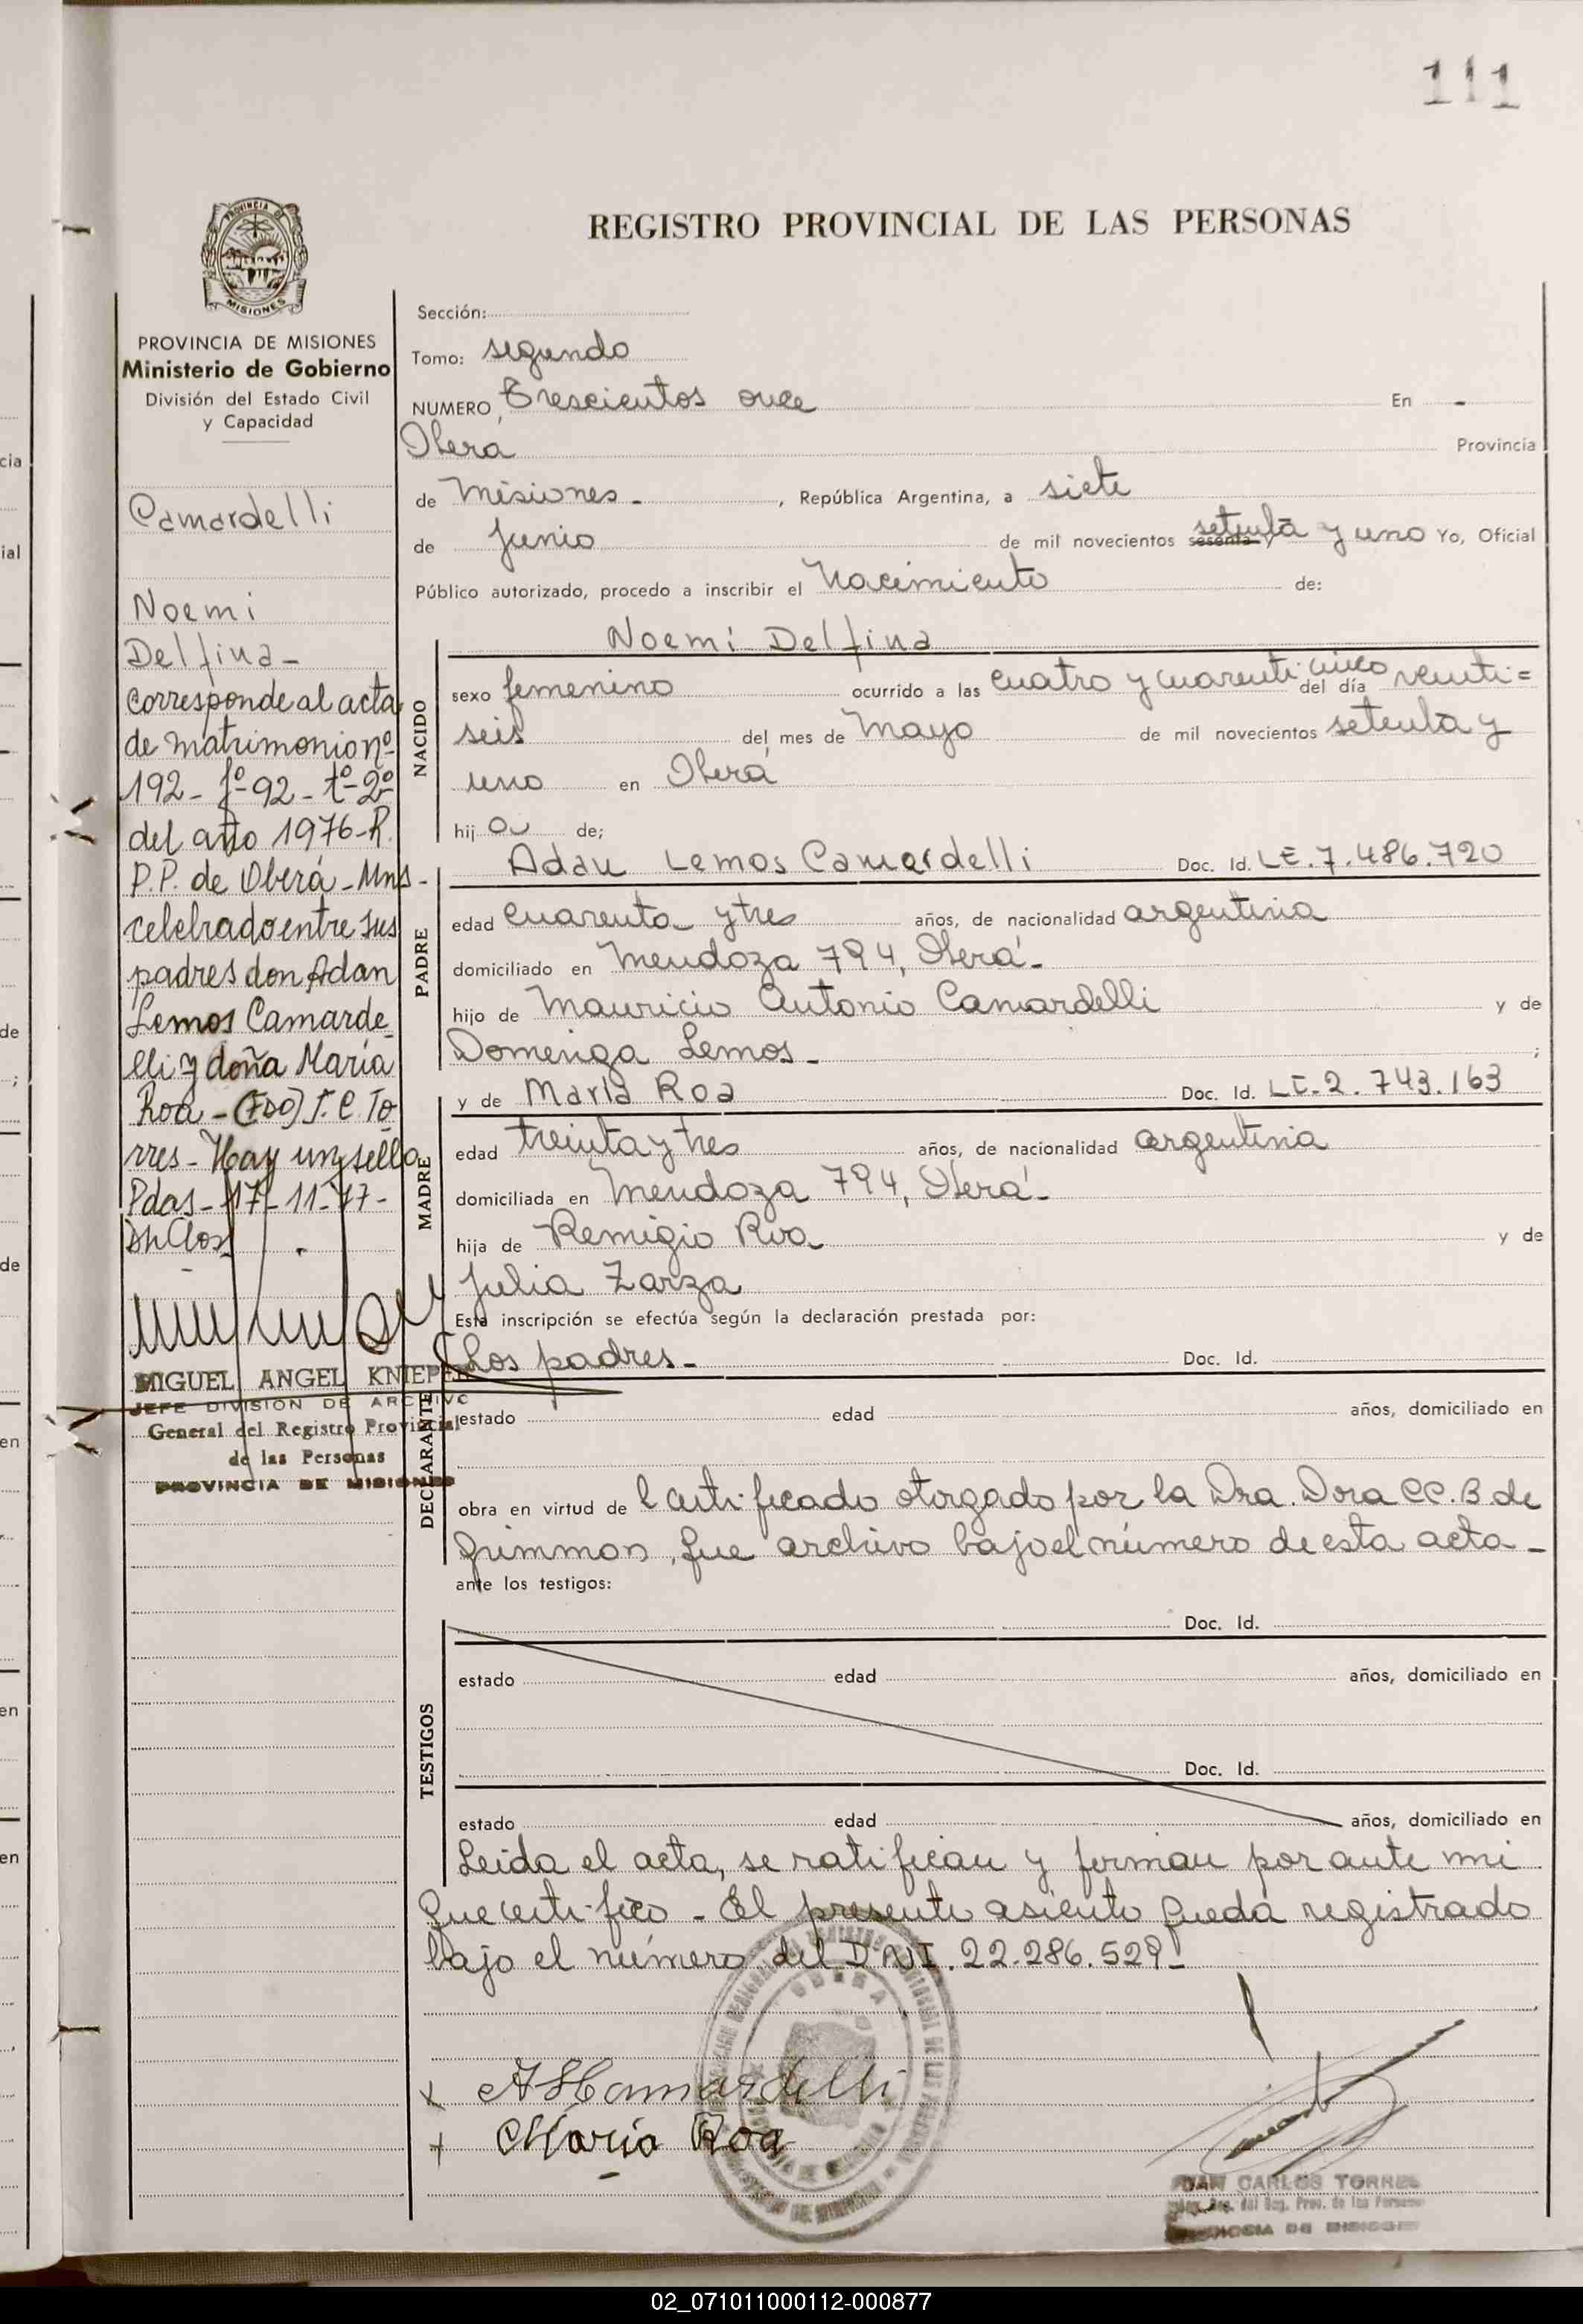 111
REGISTRO PROVINCIAL DE LAS PERSONAS
PROVINCIA DE
MISIONES
PROVINCIA DE MISIONES
Ministerio de Gobierno
División del Estado Civil
y Capacidad
Camardelli
Noemi
Delfina -
Corresponde al acta
de matrimonio nº
192 - fº 92 - tº 2º
del año 1976 - R.
P.P. de Oberá - Mns -
celebrado entre sus
padres don Adan
Lemos Camarde
lli y doña María
Roa - (FDO) J. C. To
rres - Hay un sello
Pdas - 17 - 11 - 77 -
MIGUEL ANGEL KNIEPER
JEFE DIVISION DE ARCHIVO
General del Registro Provincial
de las Personas
PROVINCIA DE MISIONES
Sección:
Tomo: segundo
NUMERO, Trescientos once En -
Obera Provincia
de Misiones - , República Argentina, a siete
de Junio de mil novecientos sesenta y setenta y uno Yo, Oficial
Público autorizado, procedo a inscribir el Nacimiento de:
NACIDO
Noemi Delfina
sexo femenino ocurrido a las cuatro y cuarenti cinco del día veinti=
seis del mes de Mayo de mil novecientos setenta y
uno en Oberá
hij a de;
PADRE
Adan Lemos Camardelli Doc. Id. LE. 7.486.720
edad cuarenta y tres años, de nacionalidad argentina
domiciliado en Mendoza 794, Oberá -
hijo de Mauricio Antonio Camardelli y de
Domeniga Lemos - ;
MADRE
y de María Roa Doc. Id. LC. 2.743.163
edad treinta y tres años, de nacionalidad argentina
domiciliada en Mendoza 794, Oberá -
hija de Remigio Roa y de
Julia Zarza
Esta inscripción se efectúa según la declaración prestada por:
DECLARANTE
Los padres - Doc. Id.
estado edad años, domiciliado en
obra en virtud de l certificado otorgado por la Dra. Dora CC. B de
, fue archivo bajo el número de esta acta -
ante los testigos:
TESTIGOS
Doc. Id.
estado edad años, domiciliado en
Doc. Id.
estado edad años, domiciliado en
Leida el acta, se ratifican y firman por ante mi
que certifico - El presente asiento queda registrado
bajo el número del D.N.I. 22.286.529 -
x Camardelli
+ María Roa
JUAN CARLOS TORRES
del Reg. Prov. de las Personas
PROVINCIA DE MISIONES
cia
ial
de
;
de
en
en
en
02_071011000112-000877